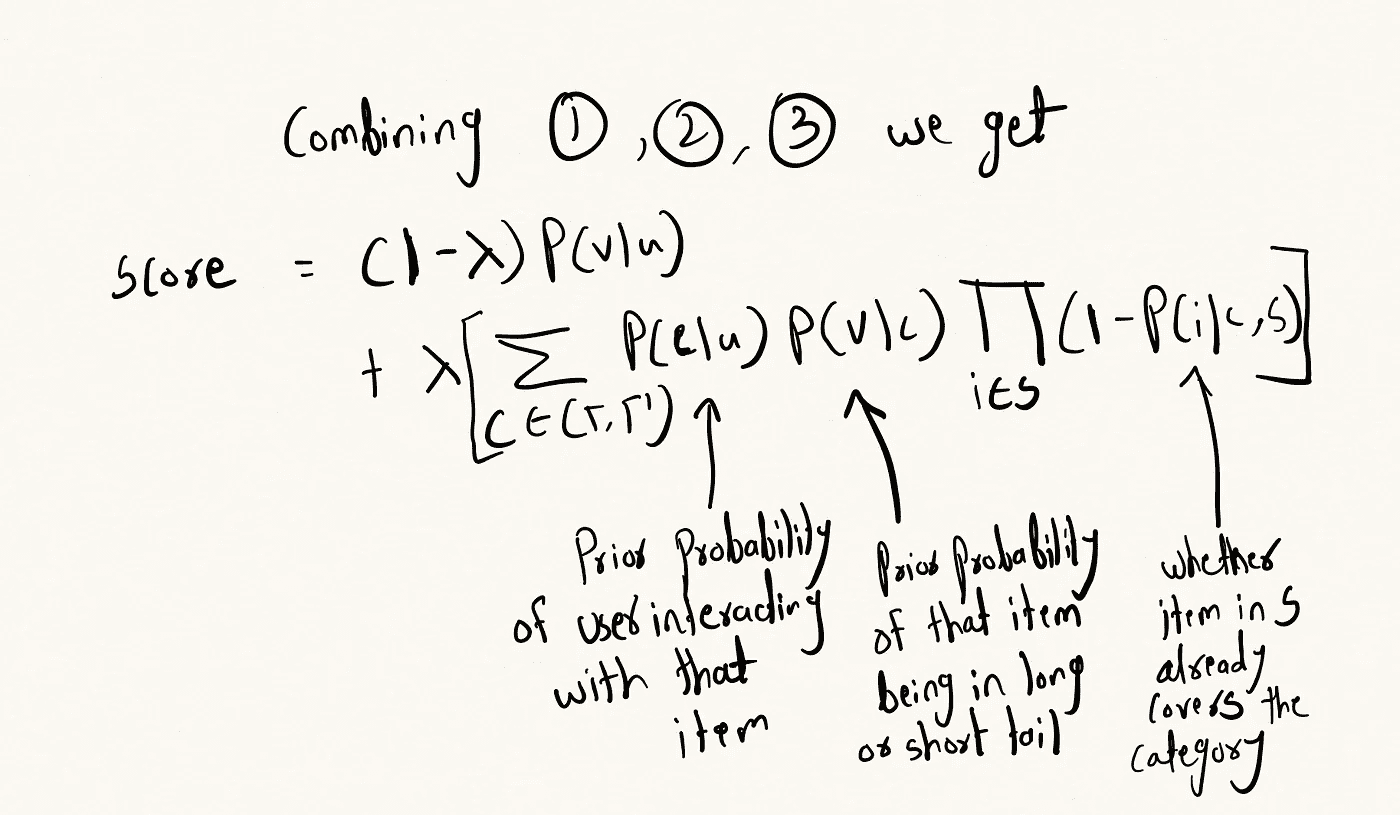 Combining ①, ②, ③ we get
Score = (1-λ) P(v|u)
+ λ[∑ P(c|u) P(v|c) ∏ (1-P(i|c,S)]
C ∈ (Γ, Γ') i∈S
Prior probability
of user interacting
with that
item
Prior probability
of that item
being in long
or short tail
whether
item in S
already
covers the
category